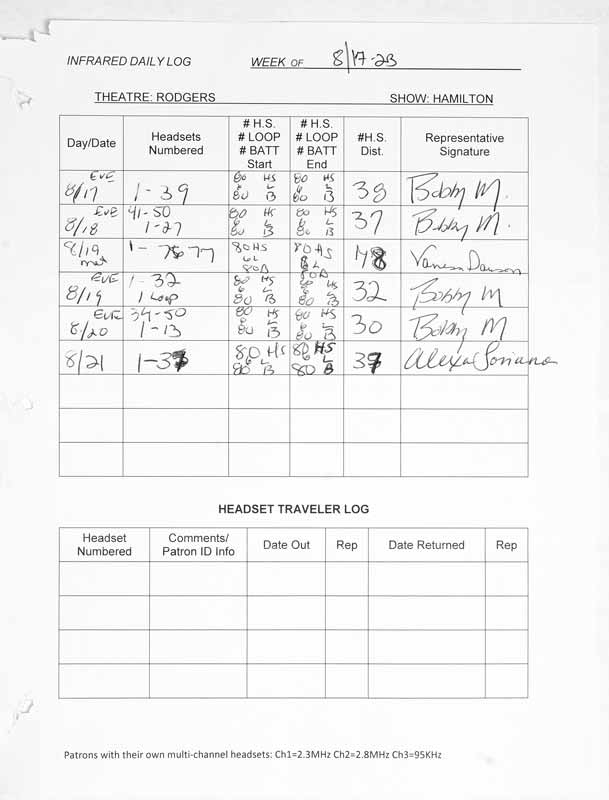 INFRARED DAILY LOG WEEK OF 8/17-23
THEATRE: RODGERS SHOW: HAMILTON
Day/Date
Headsets
Numbered
# H.S.
# LOOP
# BATT
Start
# H.S.
# LOOP
# BATT
End
#H.S.
Dist.
Representative
Signature
EVE
8/17
1-39
80 HS
6 L
80 B
80 HS
6 L
80 B
38
Bobby M.
EVE
8/18
41-50
1-27
80 HS
6 L
80 B
80 HS
6 L
80 B
37
Bobby M.
8/19
mat
1-
77
80 HS
6L
80B
80 HS
L
80B
Vanessa Dawson
EVE
8/19
1-32
1 Loop
80 HS
6 L
80 B
80 HS
6 L
80 B
32
Bobby M
EVE
8/20
34-50
1-13
80 HS
6 L
80 B
80 HS
6 L
80 B
30
Bobby M
8/21
1-37
80 HS
6 L
80 B
80 HS
6 L
80 B
37
Alexa Soriano
HEADSET TRAVELER LOG
Headset
Numbered
Comments/
Patron ID Info
Date Out
Rep
Date Returned
Rep
Patrons with their own multi-channel headsets: Ch1=2.3MHz Ch2=2.8MHz Ch3=95KHz